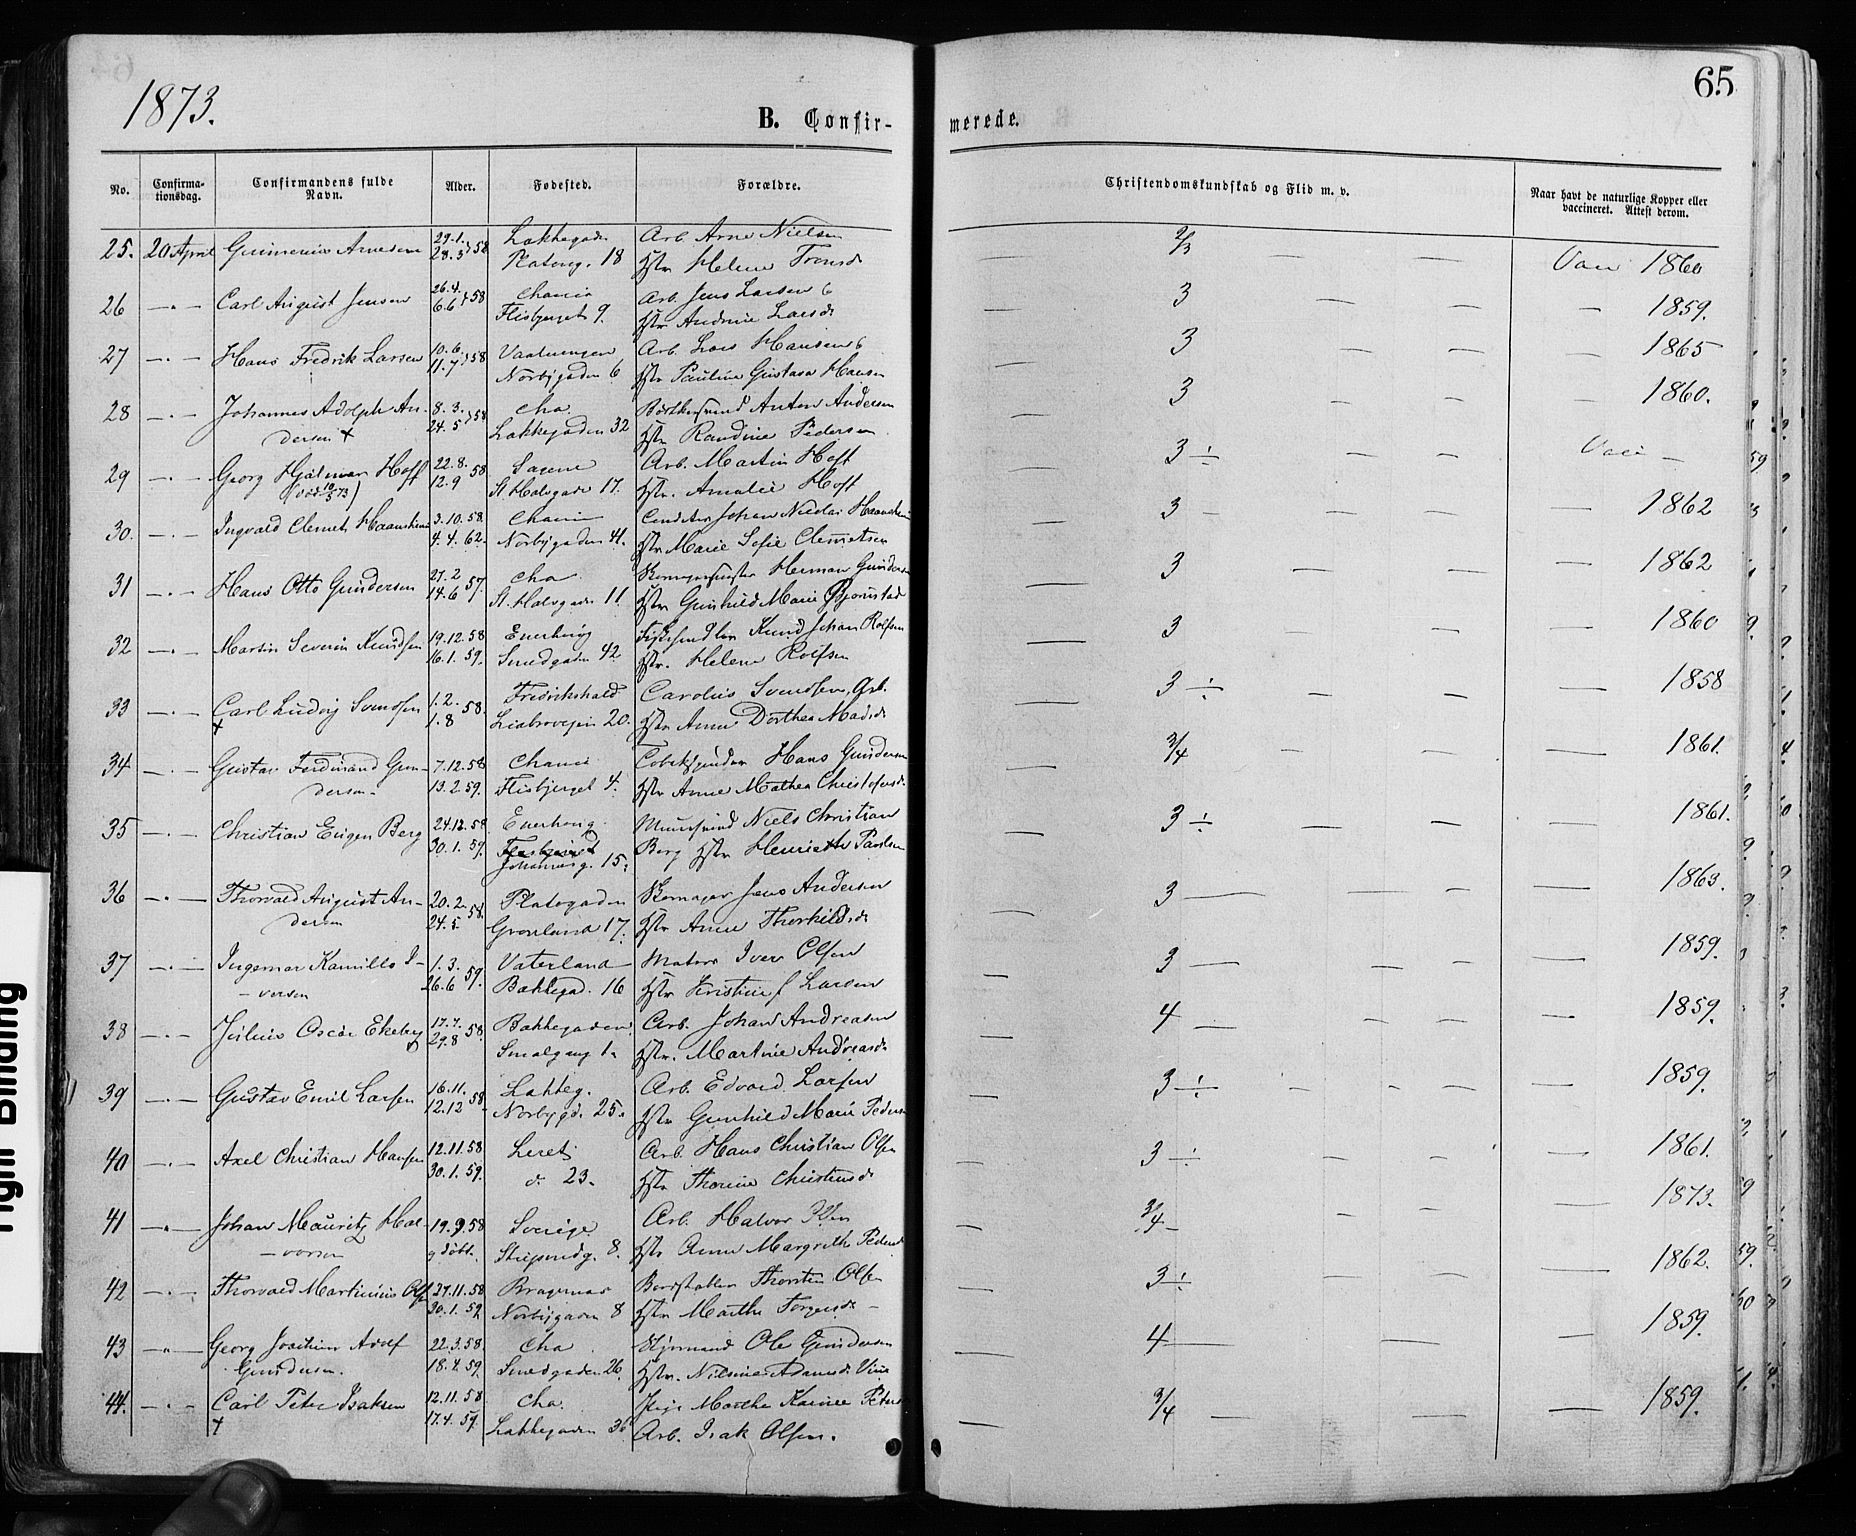 1873.
65
B. Confir-
merede.
No. Confirma-tionsdag. Confirmandens fulde Navn. Alder. Fødested. Forældre. Christendomskundskab og Flid m. v. Naar havt de naturlige Kopper eller vaccineret. Attest derom.
25. 20 April Arnesen 29.1. 28.3 58 Lakkegaden Arb. Arne Nielsen 2/3 — — Vacc 1860
Platoug. 18 Hstr Helene
26 —〃— Carl August Jensen 26.4. 6.6 58 Chania Arb. Jens Larsen 3 — — — 1859.
Flisbjerget 9. Hstr Andrine Larsd.
27 —〃— Hans Fredrik Larsen 10.6. 11.7 58 Vaalerengen Arb. Lars Hansen 3 — — — 1865
Norbygaden 6 Hstr Pauline Gustava Hansen
28 —〃— Johannes Adolph An- 8.3. 24.5 58 Cha. Anton Andersen 3 — — — 1860.
dersen + Lakkegaden 32 Hstr Randine Pedersen
29 —〃— Georg Hjalmar Hoff 22.8. 12.9 58 Sagene Arb. Martin Hoff 3 ÷ — — Vacc —
St. Halvgade 17. Hstr. Amalie Hoff
30. —〃— Ingvald Clemet 3.10.58. 4.4.62. Chania Johan Nicolai 3 — — — 1862
Norbygaden 41. Hstr Marie Sofie Clemetsen
31 —〃— Hans Otto Gundersen 27.2 14.6 57. Cha. Herman Gundersen 3 — — — 1862
St. Halvgaden 11. Hstr Gunhild Marie Bjørnstad
32 —〃— Martin Severin Knudsen 19.12.58 16.1.59. Enerhoug Knud Johan Rolfsen 3 — — — 1860
Smedgaden 42 Hstr. Helene Rolfsen
33 —〃— Carl Ludvig Svendsen 1.2. 1.8 58. Fredrikshald Carolus Svendsen, Arb. 3 ÷ — — — 1858
+ Liabroveien 20. Hstr Anne Dorthea Madsd.
34 —〃— Gustav Ferdinand Gun- 7.12.58 13.2.59. Chania Hans Gundersen 3/4 — — — 1861.
dersen Flisbjerget 4. Hstr Anne Mathea Christofersd.
35 —〃— Christian Eugen Berg 24.12.58 30.1.59. Enerhoug. Muursvend Niels Christian 3 ÷ — — — 1861.
Johannesg. 15. Berg Hstr Henriette Paulsen
36 —〃— Thorvald August An- 20.2. 24.5 58. Platogaden Skomager Jens Andersen 3 — — — 1863.
dersen Grønland 17. Hstr Anne Thorkildsd.
37 —〃— Ingemar Kamillo I- 1.3. 26.6 59. Vaterland Matros Iver Olsen 3 — — — 1859.
versen Bakkegad. 16 Hstr Kristine Larsen
38 —〃— Julius Oscar Ekeberg 17.7. 29.8 58. Bakkegaden Arb. Johan Andreasen 4 — — — 1859.
Smalgang 1. Hstr. Martine Andreasd.
39 —〃— Gustav Emil Larsen 16.11. 12.12 58. Lakkeg. Arb. Edvard Larsen 3 ÷ — — — 1859.
Norbygd. 25. Hstr Gunhild Marie Peders
40 —〃— Axel Christian Hansen 12.11.58 30.1.59. Leret Arb. Hans Christian Olsen 3 ÷ — — — 1861.
d. 23. Hstr Thorine Christensd.
41 —〃— Johan Mauritz Hal- 19.9.58 Sverige Arb. Halvor Olsen 3/4 — — — 1873.
vorsen 8. Hstr Anne Margrethe Pedersd
42 —〃— Thorvald Martinius Olsen 27.11.58 30.1.59 Bragernes Thorsten Olsen 3 ÷ — — — 1862.
Norbygaden 8 Hstr Marthe Torgersd.
43 —〃— Georg Joachim Adolf 22.3.58 18.4.59. Cha Styrmand Ole Gundersen 4 — — — 1859.
Gundersen. Smedgaden 26. Hstr. Nilsine
44. —〃— Carl Peter Isaksen 12.11.58 17.4.59. Cha. Pige Marthe Karine Peters 3/4 — — — 1859.
+ Lakkegaden 36 Arb. Isak Olsen.
Tight Binding